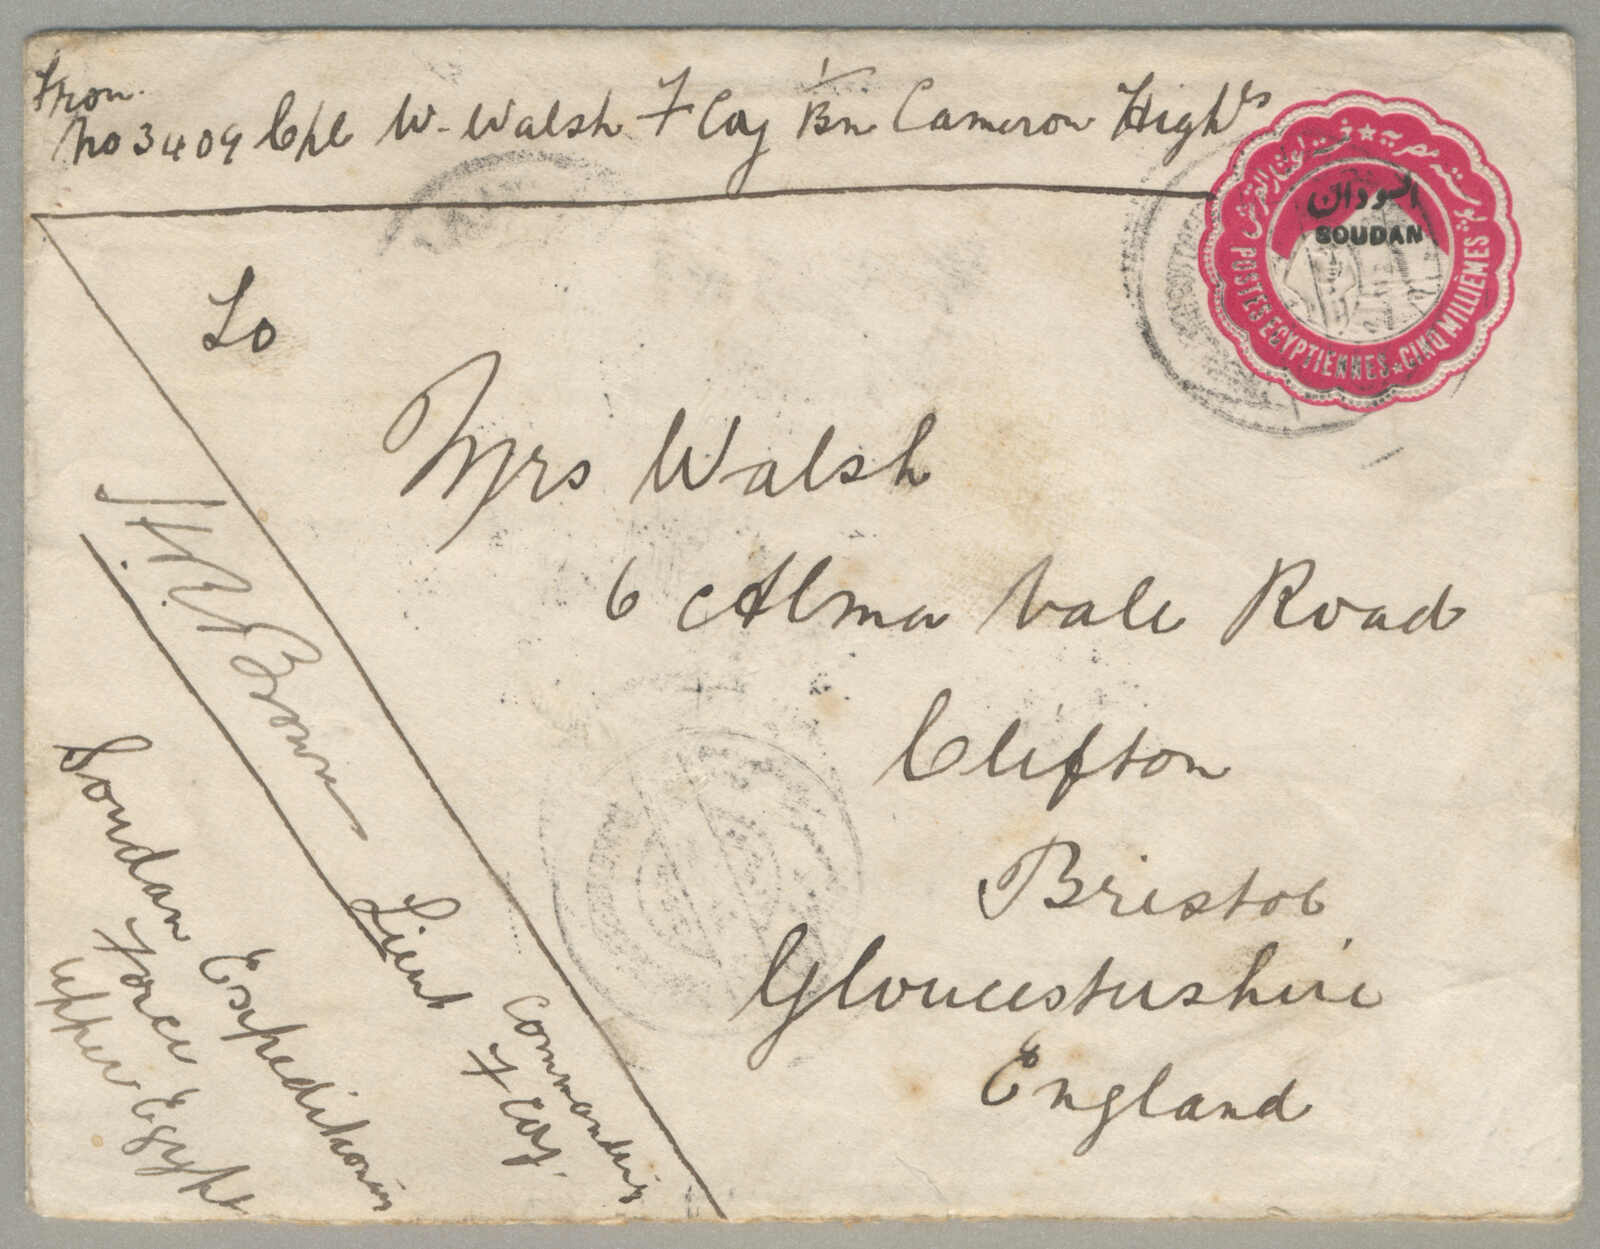 From.
No 3409 Cpl W. Walsh F Coy 1/Bn Cameron Highrs
السودان
SOUDAN
POSTES EGYPTIENNES ★ CINQ MILLIÈMES
To
Mrs Walsh
6 Alma Vale Road
Clifton
Bristol
Gloucestershire
England
Brown
Lieut
Commanding
F Coy.
Soudan Expeditionary
Force
Upper Egypt